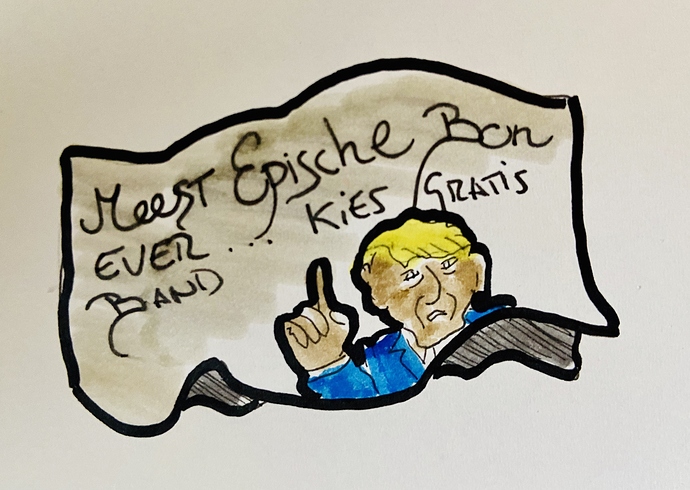 Meest Epische Bon
EVER... KIES GRATIS
BAND